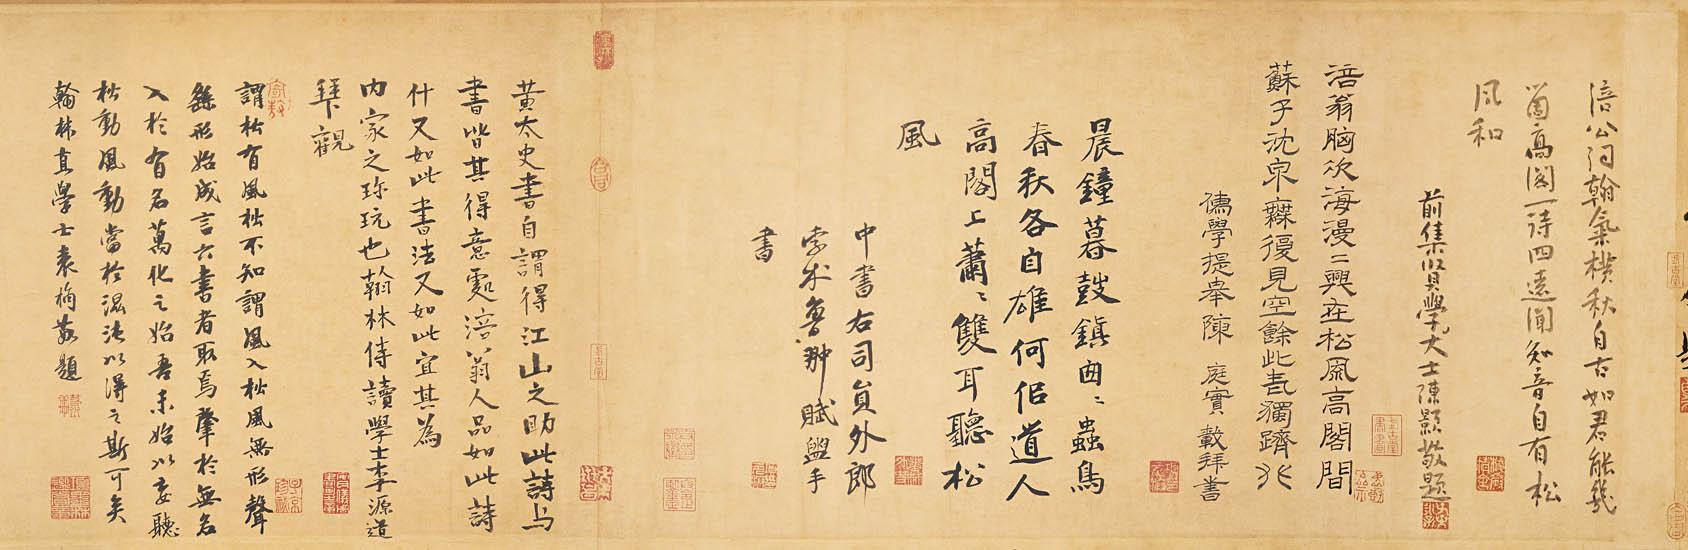 涪公詞翰氣橫秋自古如君能幾
箇高閣一詩四遠聞知音自有松
風和
前集賢學大士陳顥敬題
涪翁胸次海漫〻興在松風高閣間
蘇子沈泉無復見空餘此卷獨躋
儒學提舉陳庭實載拜書
晨鐘暮鼓鎮囪〻蟲鳥
春秋各自雄何侣道人
高閣上蕭〻雙耳聽松
風
中書右司員外郎
孛朮魯翀賦盥手
書
黃太史書自謂得江山之助此詩与
書皆其得意處涪翁人品如此詩
什又如此書法又如此宜其為
內家之珍玩也翰林侍讀學士李源道
拜觀
謂松有風松不知謂風入松風無形聲
繇形始成言六書者取焉肇於無名
入於有名萬化之始吾未始以妄聽
松動風動當於混法以得之斯可矣
翰林直學士袁桷敬題